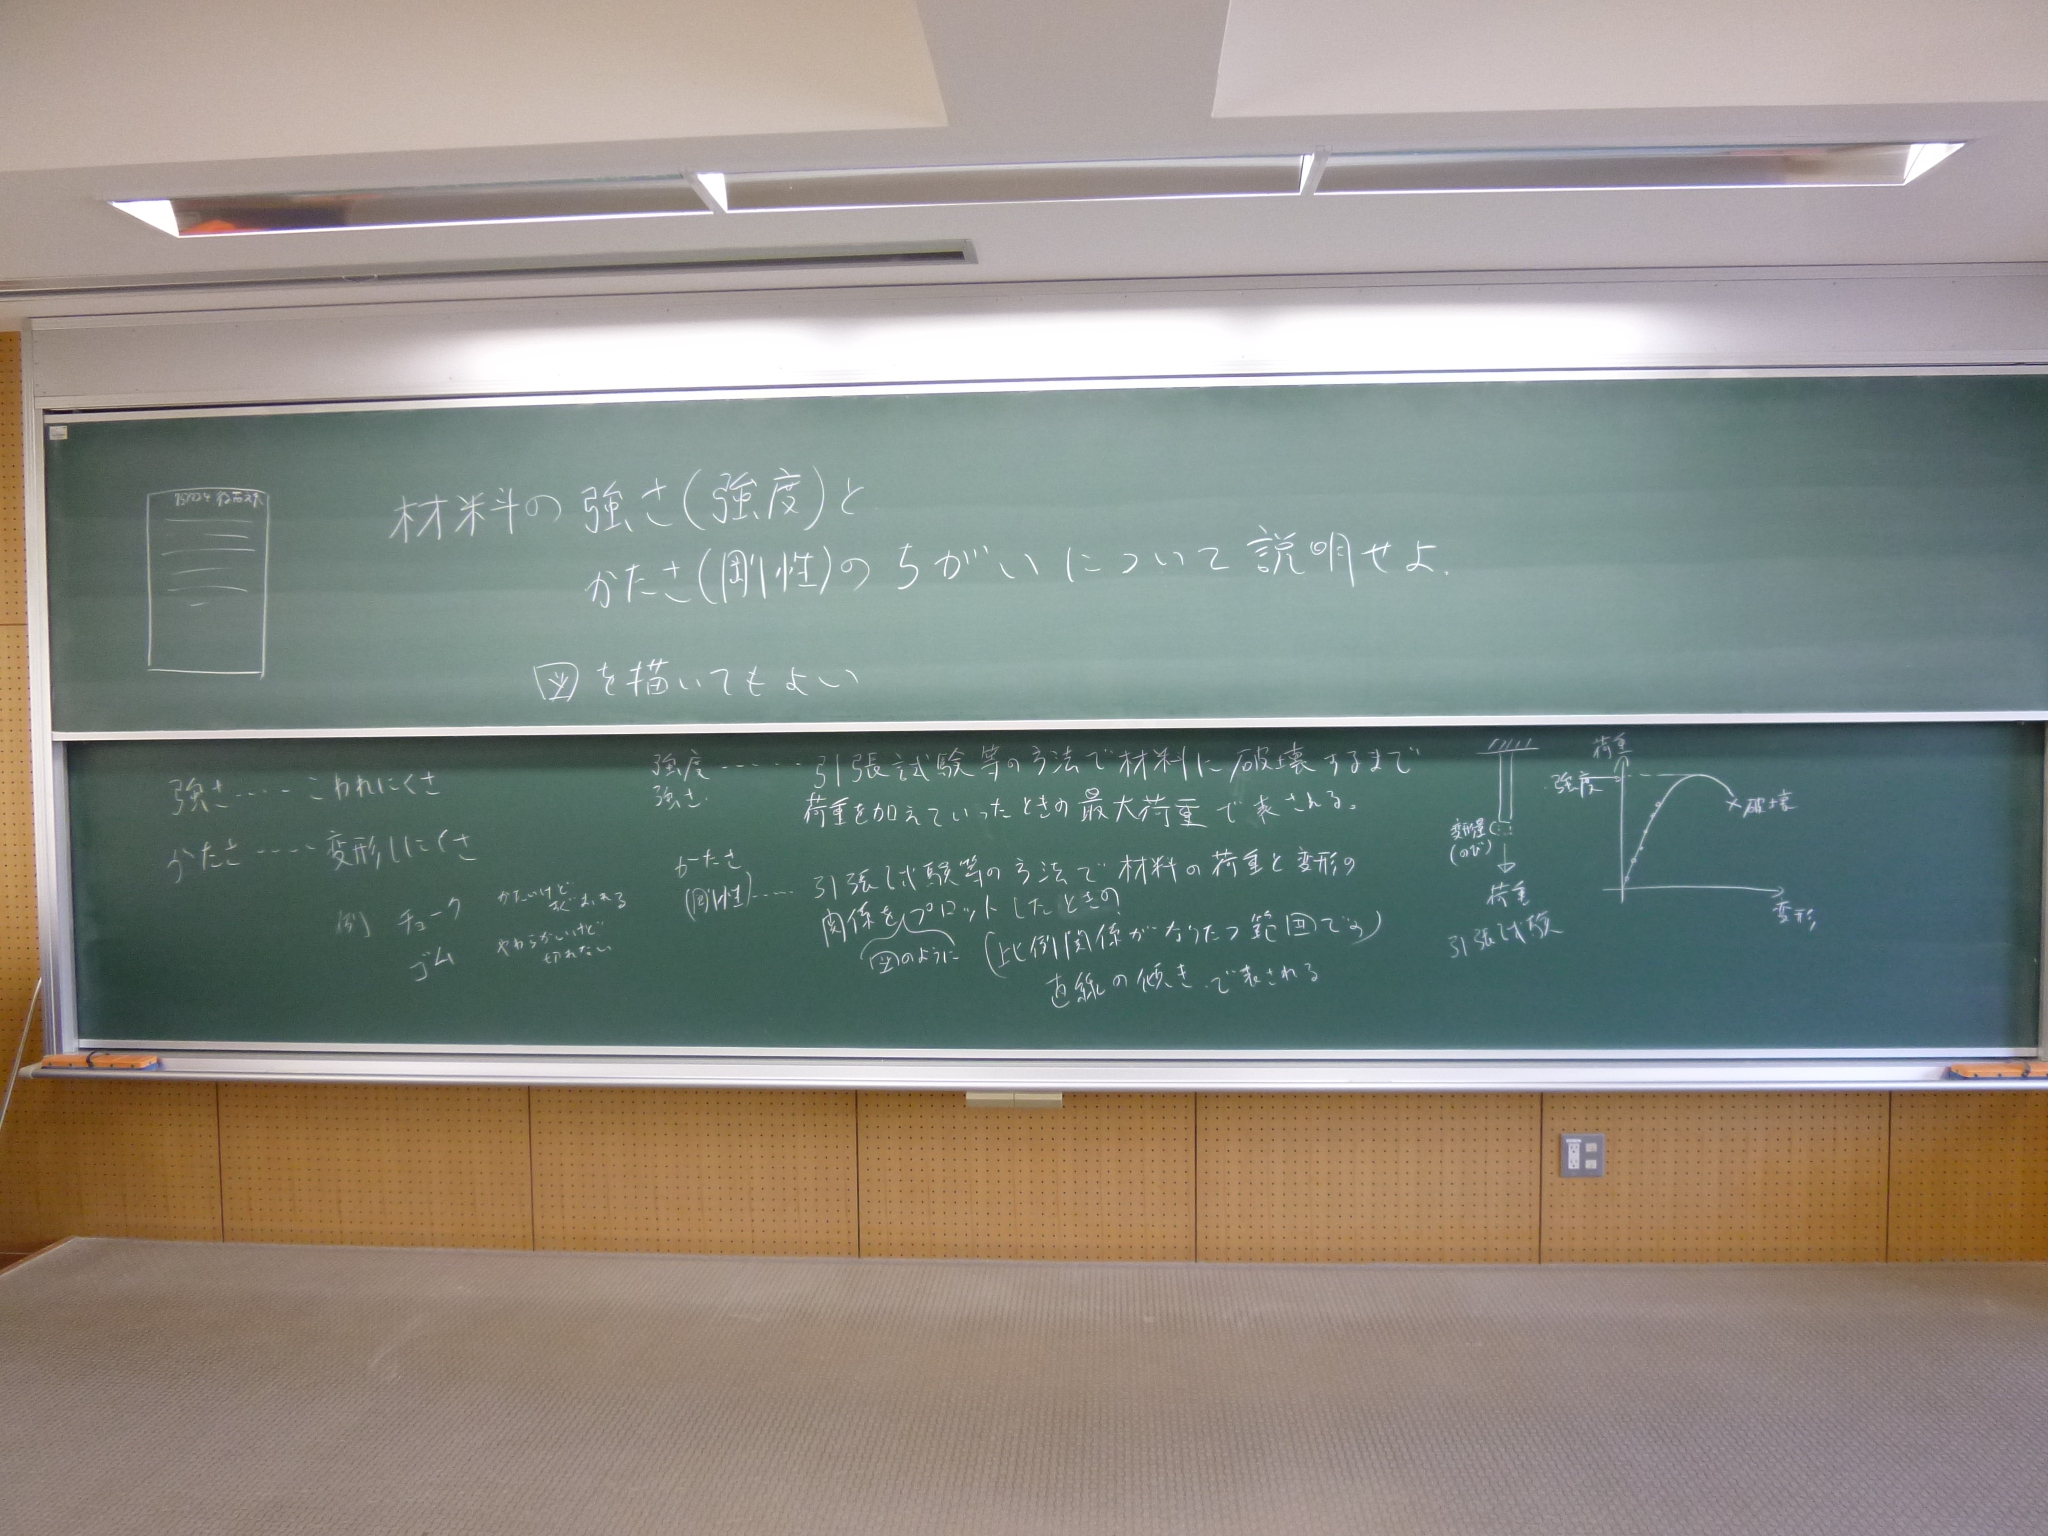 材料の強さ(強度)と
かたさ(剛性)のちがいについて説明せよ.
図を描いてもよい
強さ‥‥こわれにくさ
かたさ‥‥変形しにくさ
例 チョーク かたいけど
すぐおれる
ゴム やわらかいけど
切れない
強度‥‥‥引張試験等の方法で材料に破壊するまで
強さ. 荷重を加えていったときの最大荷重で表される。
かたさ
(剛性)‥‥引張試験等の方法で材料の荷重と変形の
関係をプロットしたときの
図のように (比例関係がなりたつ範囲での)
直線の傾きで表される
変形量
(のび)
荷重
引張試験
荷重
強度
破壊
変形